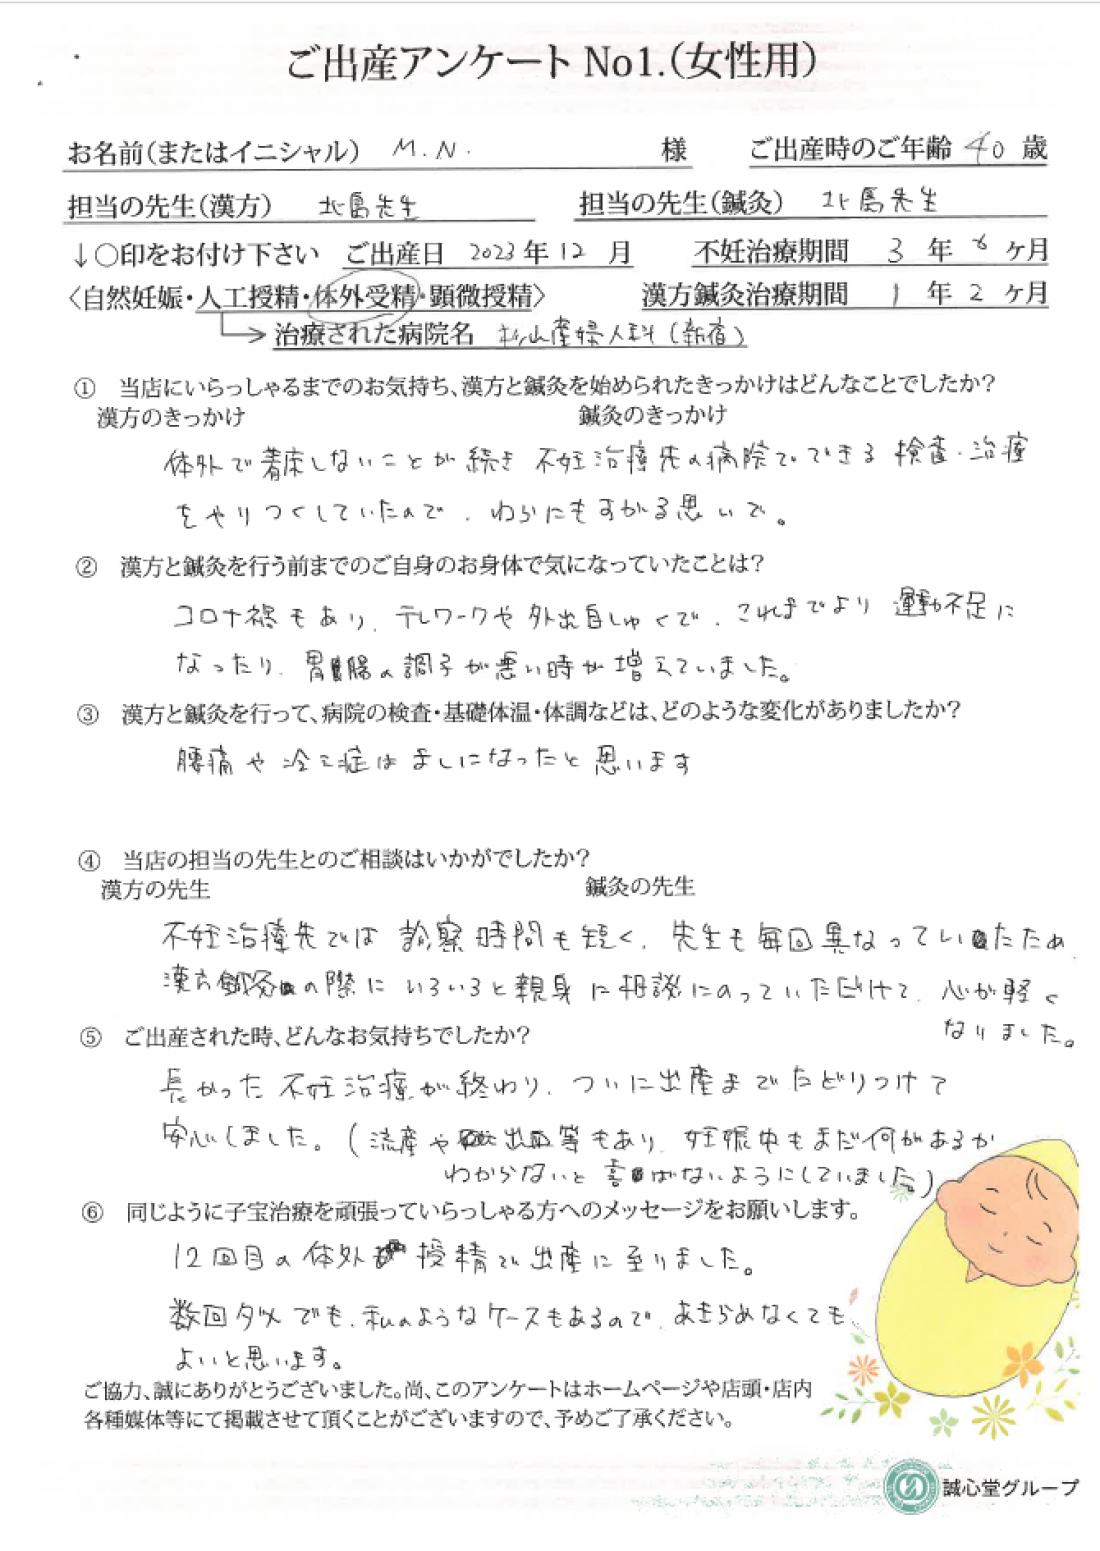 ご出産アンケート No1.(女性用)
お名前(またはイニシャル) M.N. 様 ご出産時のご年齢 40 歳
担当の先生(漢方) 北島先生 担当の先生(鍼灸) 北島先生
↓○印をお付け下さい ご出産日 2023年 12 月 不妊治療期間 3 年 6 ヶ月
〈自然妊娠・人工授精・体外受精・顕微授精〉 漢方鍼灸治療期間 1 年 2 ヶ月
治療された病院名 杉山産婦人科(新宿)
① 当店にいらっしゃるまでのお気持ち、漢方と鍼灸を始められたきっかけはどんなことでしたか?
漢方のきっかけ 鍼灸のきっかけ
体外で着床しないことが続き 不妊治療先の病院でできる検査・治療
をやりつくしていたので、わらにもすがる思いで。
② 漢方と鍼灸を行う前までのご自身のお身体で気になっていたことは?
コロナ禍もあり、テレワークや外出自しゅくで、これまでより運動不足に
なったり、胃腸の調子が悪い時が増えていました。
③ 漢方と鍼灸を行って、病院の検査・基礎体温・体調などは、どのような変化がありましたか?
腰痛や冷え症はましになったと思います
④ 当店の担当の先生とのご相談はいかがでしたか?
漢方の先生 鍼灸の先生
不妊治療先では診察時間も短く、先生も毎回異なっていたため
漢方鍼灸の際にいろいろと親身に相談にのっていただけて、心が軽く
なりました。
⑤ ご出産された時、どんなお気持ちでしたか?
長かった不妊治療が終わり、ついに出産までたどりつけて
安心しました。(流産や出血等もあり、妊娠中もまだ何があるか
わからないと喜ばないようにしていました。)
⑥ 同じように子宝治療を頑張っていらっしゃる方へのメッセージをお願いします。
12回目の体外授精で出産に至りました。
数回ダメでも、私のようなケースもあるので、あきらめなくても
よいと思います。
ご協力、誠にありがとうございました。尚、このアンケートはホームページや店頭・店内
各種媒体等にて掲載させて頂くことがございますので、予めご了承ください。
誠心堂グループ